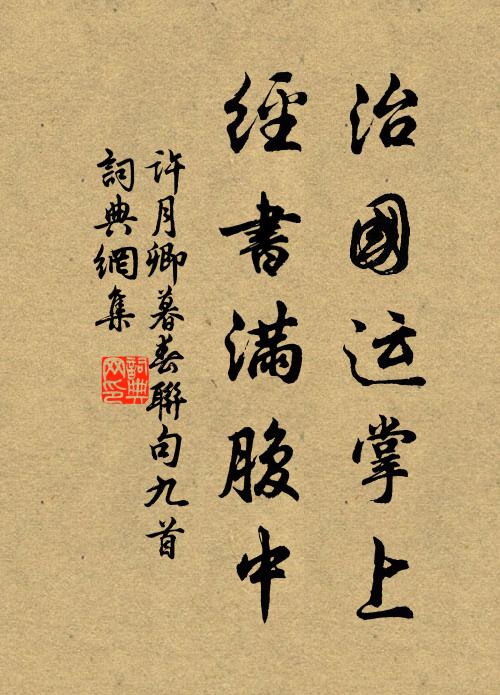 治國运掌上
經書滿腹中
許月卿暮春聯句九首
詞典網集
詞典網印